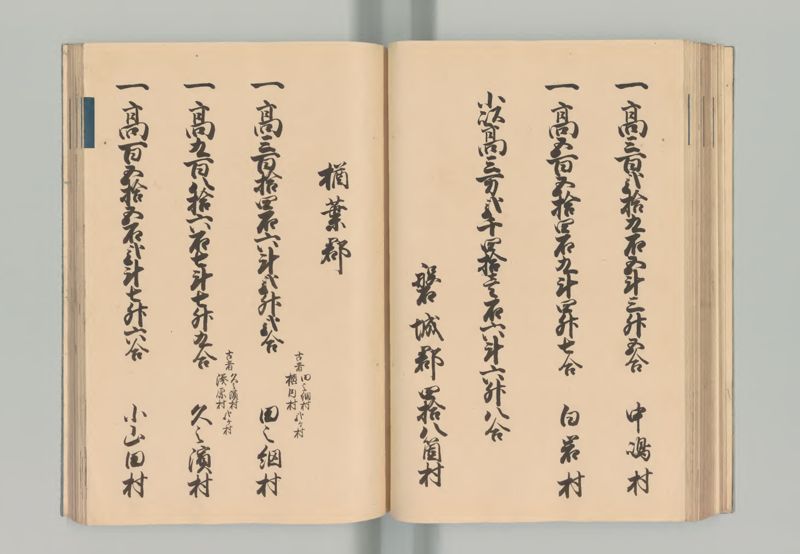 一高三百弐拾九石五斗三升五合 中嶋村
一高五百五拾四石九斗四升七合 白岩村
小以高三万弐千四拾壱石六斗六升八合
磐城郡四拾八箇村
楢葉郡
一高三百拾四石六斗弐升弐合 田之網村
古者 田之網村 弐ケ村
楢目村
一高九百八拾六石七斗七升九合 久之濱村
古者 久之濱村 弐ケ村
濱原村
一高百五拾五石弐斗七升六合 小山田村